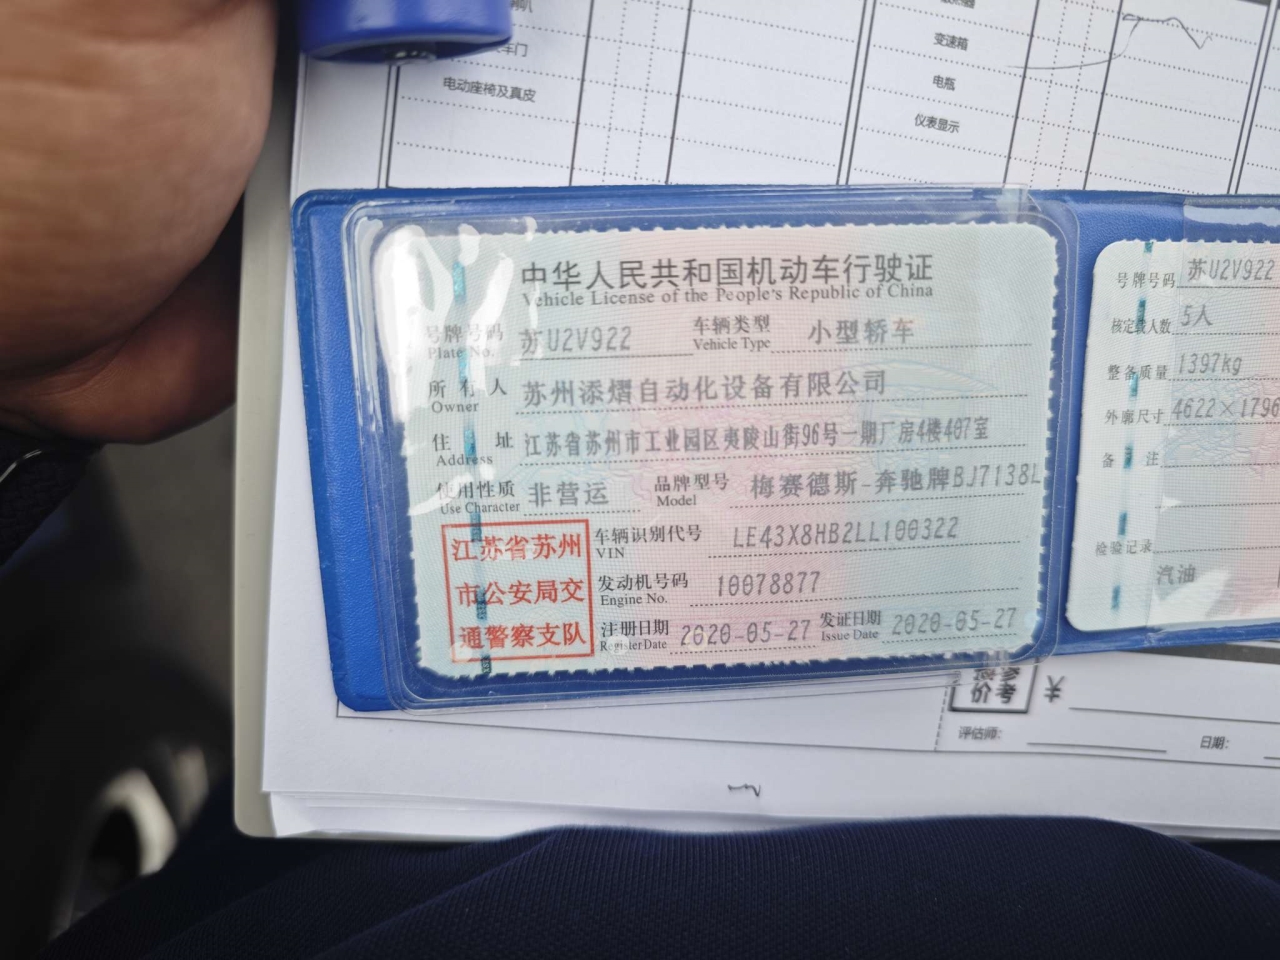 变速箱
车门
电动座椅及真皮
电瓶
仪表显示
中华人民共和国机动车行驶证
Vehicle License of the People's Republic of China
号牌号码 苏U2V922 车辆类型 小型轿车
Plate No. Vehicle Type
所有人 苏州添熠自动化设备有限公司
Owner
住址 江苏省苏州市工业园区夷陵山街96号一期厂房4楼407室
Address
使用性质 非营运 品牌型号 梅赛德斯-奔驰牌BJ7138L
Use Character Model
江苏省苏州
市公安局交
通警察支队
车辆识别代号 LE43X8HB2LL100322
VIN
发动机号码 10078877
Engine No.
注册日期 2020-05-27 发证日期 2020-05-27
Register Date Issue Date
号牌号码 苏U2V922
核定载人数 5人
整备质量 1397kg
外廓尺寸 4622×1796
备注
检验记录
汽油
价考 ¥
评估师:
日期: